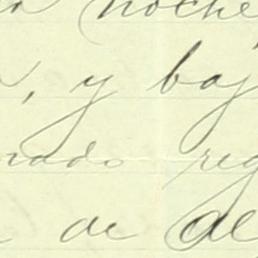 noche
, y baj
rado reg
de al